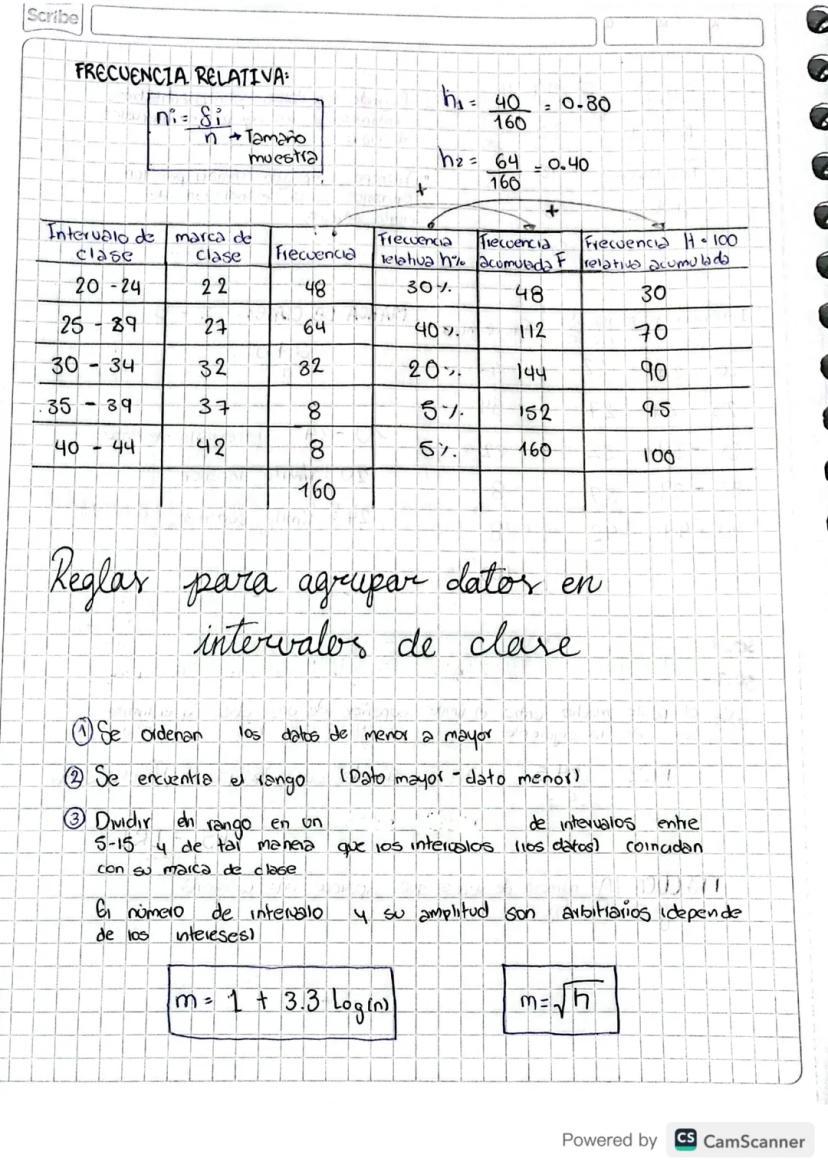 Scribe
FRECUENCIA RELATIVA:
ni = fi
n → Tamaño
muestra
h1 = 40 = 0.30
160
h2 = 64 = 0.40
160
+
+
Intervalo de clase | marca de clase | Frecuencia | Frecuencia relativa h% | Frecuencia acumulada F | Frecuencia H • 100 relativa acumulada
20 - 24 | 22 | 48 | 30% | 48 | 30
25 - 29 | 27 | 64 | 40% | 112 | 70
30 - 34 | 32 | 32 | 20% | 144 | 90
35 - 39 | 37 | 8 | 5% | 152 | 95
40 - 44 | 42 | 8 | 5% | 160 | 100
160
Reglas para agrupar datos en
intervalos de clase
① Se ordenan los datos de menor a mayor
② Se encuentra el rango (Dato mayor - dato menor)
③ Dividir en rango en un de intervalos entre
5-15 y de tal manera que los intervalos (los datos) coincidan
con su marca de clase
El número de intervalo y su amplitud son arbitrarios (depende
de los intereses)
m = 1 + 3.3 Log(n)
m = √n
Powered by CS CamScanner